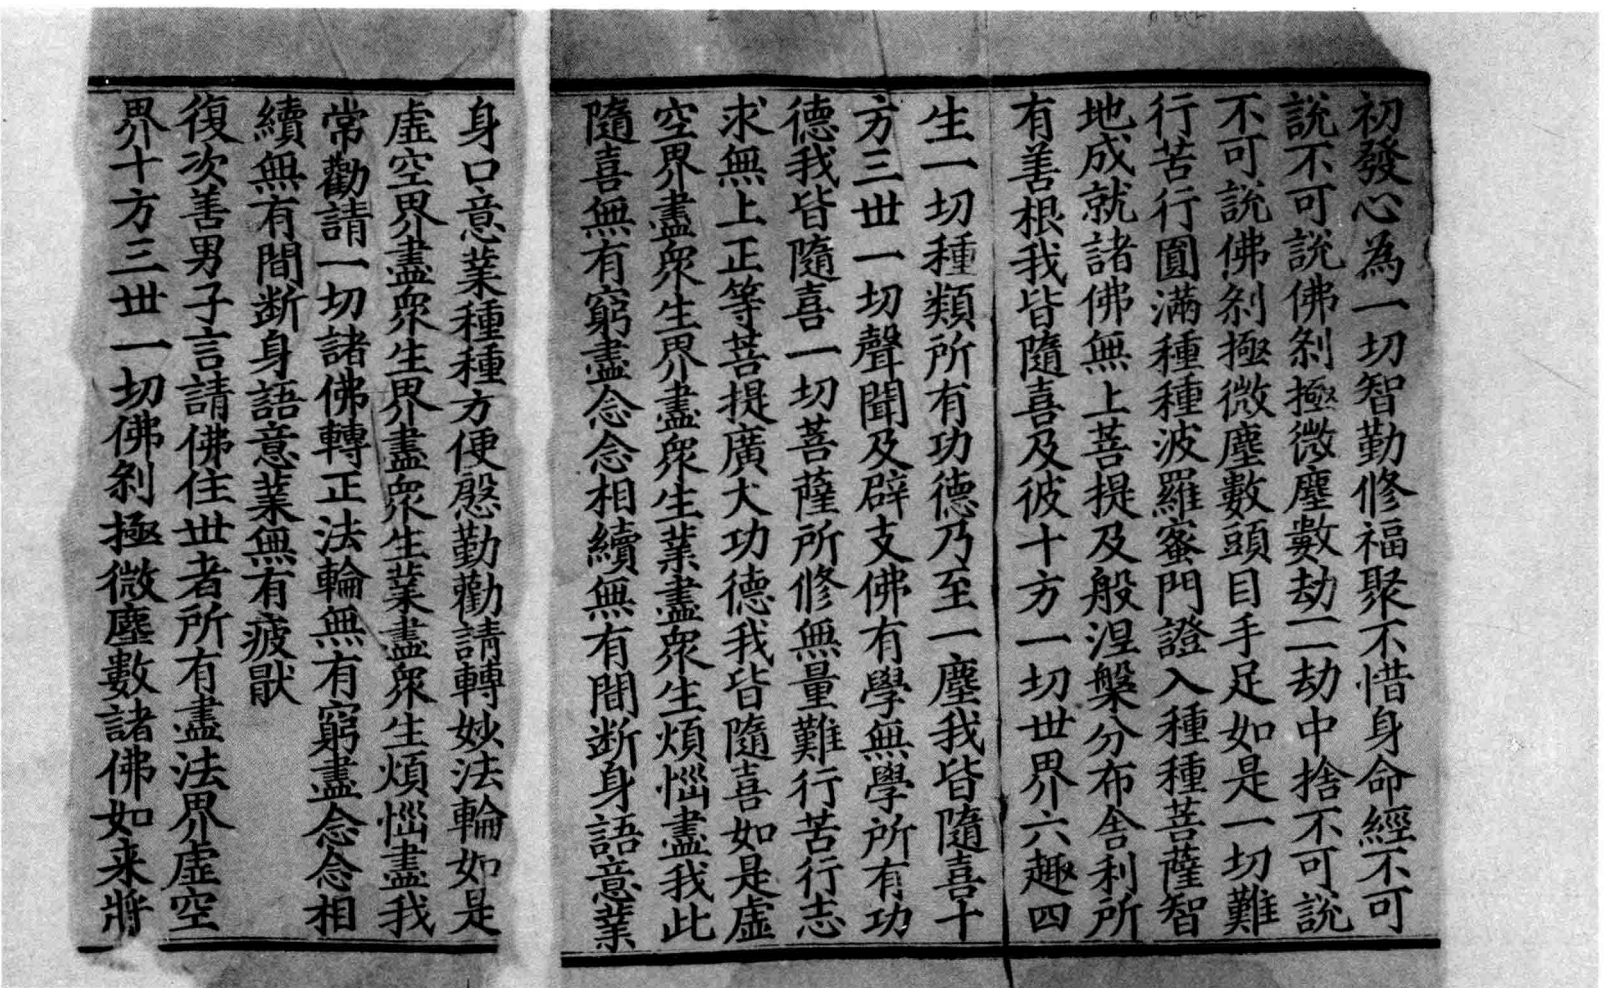 初發心為一切智勤修福聚不惜身命經不可
說不可說佛剎極微塵數劫一一劫中捨不可說
不可說佛剎極微塵數頭目手足如是一切難
行苦行圓滿種種波羅蜜門證入種種菩薩智
地成就諸佛無上菩提及般涅槃分布舍利所
有善根我皆隨喜及彼十方一切世界六趣四
生一切種類所有功德乃至一塵我皆隨喜十
方三世一切聲聞及辟支佛有學無學所有功
德我皆隨喜一切菩薩所修無量難行苦行志
求無上正等菩提廣大功德我皆隨喜如是虛
空界盡衆生界盡衆生業盡衆生煩惱盡我此
隨喜無有窮盡念念相續無有間断身語意業
身口意業種種方便慇勤勸請轉妙法輪如是
虛空界盡衆生界盡衆生業盡衆生煩惱盡我
常勸請一切諸佛轉正法輪無有窮盡念念相
續無有間断身語意業無有疲猒
復次善男子言請佛住世者所有盡法界虛空
界十方三世一切佛剎極微塵數諸佛如来將